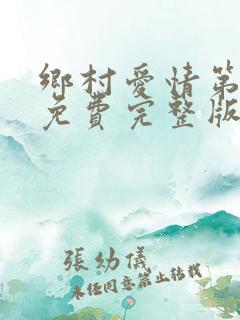 鄉村愛情第
免費完整版
張幼儀
未经同意禁止转载